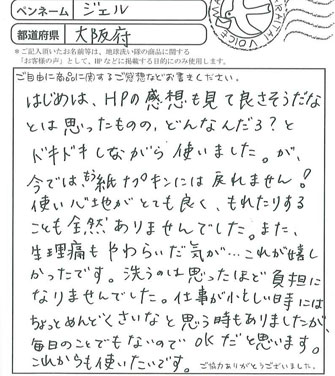 ペンネーム ジェル
都道府県 大阪府
＊ご記入頂いたお名前等は、地球洗い隊の商品に関する
「お客様の声」として、HPなどに掲載する目的にのみ使用します。
ご自由に商品に関するご感想などお書きください。
はじめは、HPの感想も見て良さそうだな
とは思ったものの、どんなんだろ？と
ドキドキしながら使いました。が、
今では、もう紙ナプキンには戻れません！
使い心地がとても良く、もれたりする
ことも全然ありませんでした。また、
生理痛もやわらいだ気が…これが嬉し
かったです。洗うのは思ったほど負担に
なりませんでした。仕事が忙しい時には
ちょっとめんどくさいなと思う時もありましたが、
毎日のことでもないのでOKだと思います。
これからも使いたいです。
ご協力ありがとうございました。
VOICE